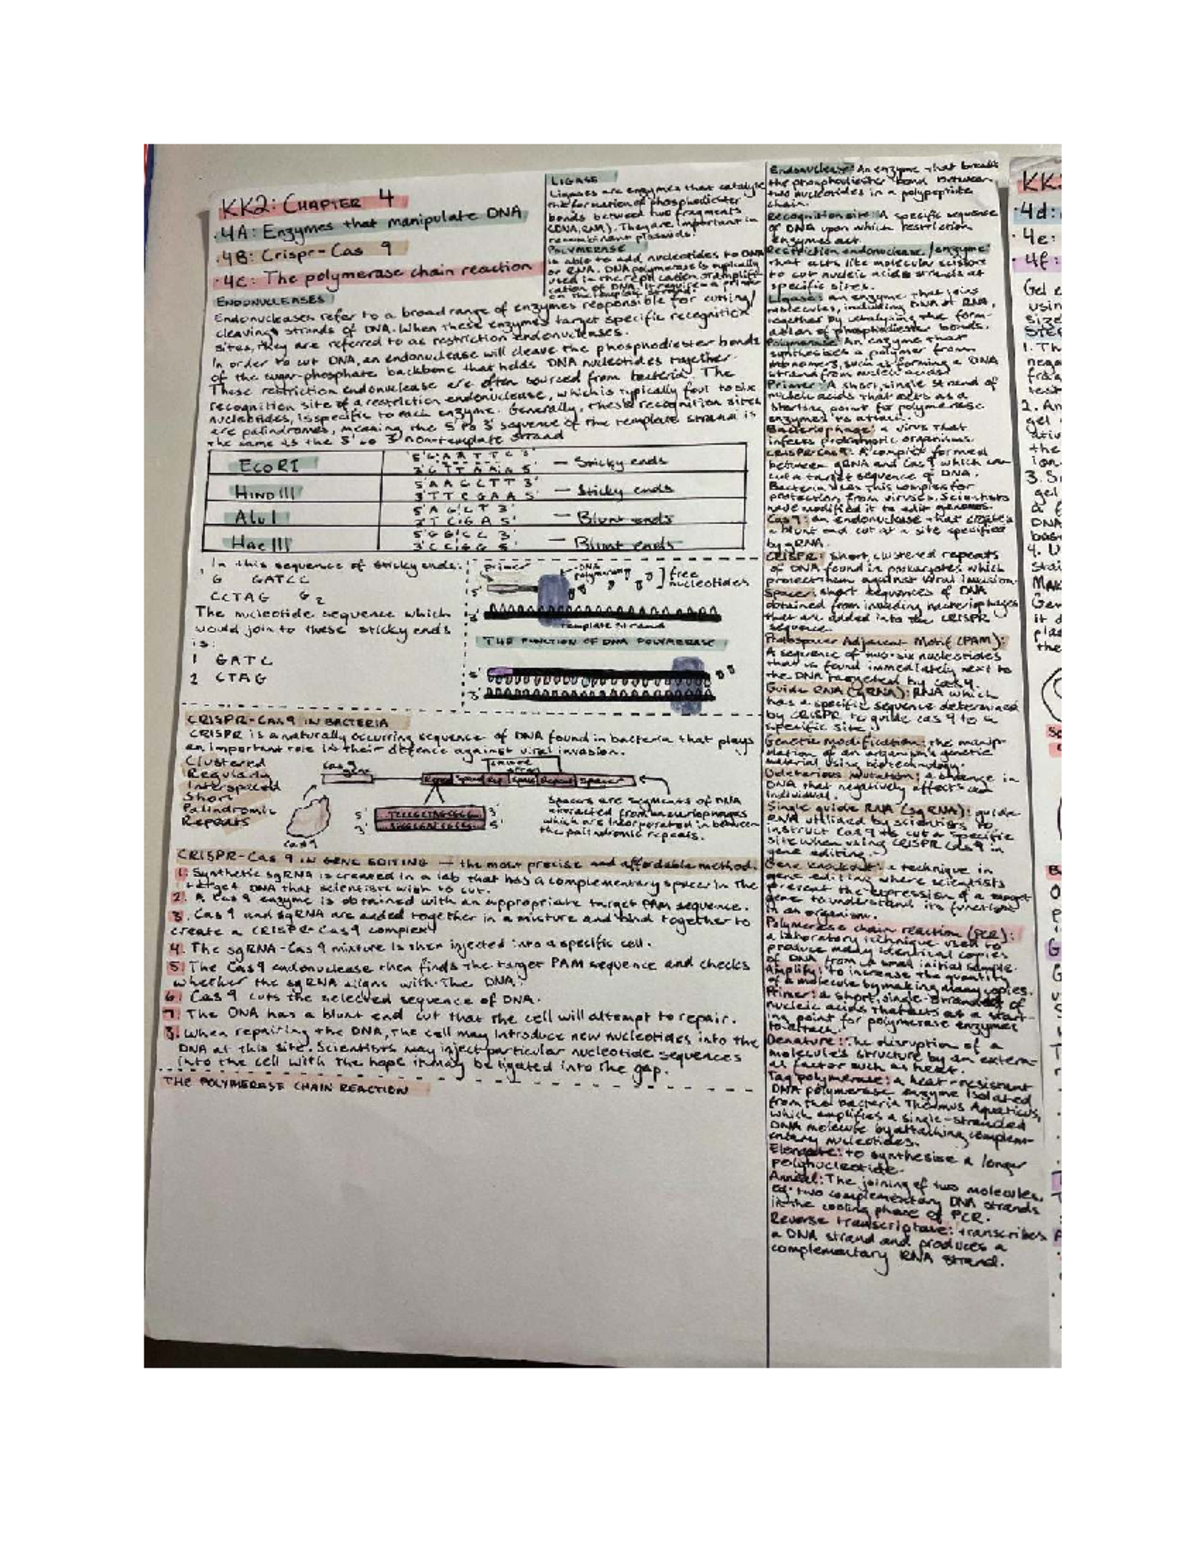 KK2: CHAPTER 4
4A: Enzymes that manipulate DNA
4B: Crispr-Cas 9
4C: The polymerase chain reaction
LIGASE
Ligases are enzymes that catalyse
the formation of phosphodiester
bonds between two fragments
(DNA, RNA). They are important in
recombinant plasmids.
POLYMERASE
is able to add nucleotides to DNA
or RNA. DNA polymerase is typically
used in the replication or amplifi-
cation of DNA. It requires a primer
on the template strand.
ENDONUCLEASES
Endonucleases refer to a broad range of enzymes responsible for cutting/
cleaving strands of DNA. When these enzymes target specific recognition
sites, they are referred to as restriction endonucleases.
In order to cut DNA, an endonuclease will cleave the phosphodiester bonds
of the sugar-phosphate backbone that holds DNA nucleotides together.
These restriction endonuclease are often sourced from bacteria. The
recognition site of a restriction endonuclease, which is typically four to six
nucleotides, is specific to each enzyme. Generally, these recognition sites
are palindromes, meaning the 5' to 3' sequence of the template strand is
the same as the 5' to 3' non-template strand
ECORI
5' G A A T T C 3'
3' C T T A A G 5'
— Sticky ends
HIND III
5' A A G C T T 3'
3' T T C G A A 5'
— Sticky ends
Alu I
5' A G C T 3'
3' T C G A 5'
— Blunt ends
Hae III
5' G G C C 3'
3' C C G G 5'
— Blunt ends
In this sequence of sticky ends:
1 G GATCC
CCTAG G 2
The nucleotide sequence which
would join to these sticky ends
is:
1 GATC
2 CTAG
primer
DNA
polymerase
free
nucleotides
5'
3'
template strand
THE FUNCTION OF DNA POLYMERASE
5'
3'
CRISPR-CAS9 IN BACTERIA
CRISPR is a naturally occurring sequence of DNA found in bacteria that plays
an important role in their defence against viral invasion.
Clustered
Regularly
Interspaced
Short
Palindromic
Repeats
Cas9
gene
Repeat Spacer
Repeat Spacer
cas9
5' 3'
3' 5'
Spacers are segments of DNA
extracted from bacteriophages
which are incorporated in between
the palindromic repeats.
CRISPR-Cas 9 IN GENE EDITING — the most precise and affordable method.
1. Synthetic sgRNA is created in a lab that has a complementary spacer in the
target DNA that scientists wish to cut.
2. A Cas9 enzyme is obtained with an appropriate target PAM sequence.
3. Cas9 and sgRNA are added together in a mixture and bind together to
create a CRISPR-Cas9 complex.
4. The sgRNA-Cas9 mixture is then injected into a specific cell.
5. The Cas9 endonuclease then finds the target PAM sequence and checks
whether the sgRNA aligns with the DNA.
6. Cas9 cuts the selected sequence of DNA.
7. The DNA has a blunt end cut that the cell will attempt to repair.
8. When repairing the DNA, the cell may introduce new nucleotides into the
DNA at this site. Scientists may inject particular nucleotide sequences
into the cell with the hope it may be ligated into the gap.
THE POLYMERASE CHAIN REACTION
Endonuclease: An enzyme that breaks
the phosphodiester bond between
two nucleotides in a polypeptide
chain.
Recognition site: A specific sequence
of DNA upon which restriction
enzymes act.
Restriction endonuclease/enzyme:
that acts like molecular scissors
to cut nucleic acid strands at
specific sites.
Ligase: an enzyme that joins
molecules, including DNA or RNA,
together by catalysing the form-
ation of phosphodiester bonds.
Polymerase: An enzyme that
synthesises a polymer from
monomers, such as forming a DNA
strand from nucleic acids
Primer: A short, single strand of
nucleic acids that acts as a
starting point for polymerase
enzymes to attach.
Bacteriophage: a virus that
infects prokaryotic organisms.
CRISPR-Cas9: A complex formed
between gRNA and Cas9 which can
cut a target sequence of DNA.
Bacteria uses this complex for
protection from viruses. Scientists
have modified it to edit genomes.
Cas9: an endonuclease that creates
a blunt end cut at a site specified
by gRNA.
CRISPR: short, clustered repeats
of DNA found in prokaryotes which
protect them against viral invasion.
Spacer: short sequences of DNA
obtained from invading bacteriophages
that are added into the CRISPR
sequence.
Protospacer Adjacent Motif (PAM):
A sequence of two-six nucleotides
that is found immediately next to
the DNA targeted by Cas9.
Guide RNA (gRNA): RNA which
has a specific sequence determined
by CRISPR to guide cas9 to a
specific site.
Genetic modification: the manip-
ulation of an organism's genetic
material using biotechnology.
Deleterious mutation: a change in
DNA that negatively affects an
individual.
Single guide RNA (sgRNA): guide
RNA utilised by scientists to
instruct Cas9 to cut a specific
site when using CRISPR Cas9 in
gene editing.
Gene knockout: a technique in
gene editing where scientists
prevent the expression of a target
gene to understand its function
in an organism.
Polymerase chain reaction (PCR):
a laboratory technique used to
produce many identical copies
of DNA from a small initial sample.
Amplify: to increase the quantity
of a molecule by making many copies.
Primer: a short, single-strand of
nucleic acids that acts as a start-
ing point for polymerase enzymes
to attach.
Denature: The disruption of a
molecule's structure by an extern-
al factor such as heat.
Taq polymerase: a heat-resistant
DNA polymerase enzyme isolated
from the bacteria Thermus Aquaticus,
which amplifies a single-stranded
DNA molecule by attaching complem-
entary nucleotides.
Elongate: to synthesise a longer
polynucleotide.
Anneal: The joining of two molecules,
eg. two complementary DNA strands
in the cooling phase of PCR.
Reverse transcriptase: transcribes
a DNA strand and produces a
complementary RNA strand.
KK
4d:
4e:
4f:
Gel e
using
size
STE
1. Th
nega
2. An
gel
the
ion
3. S
gel
DNA
4. U
stai
Gen
it d
plas
the